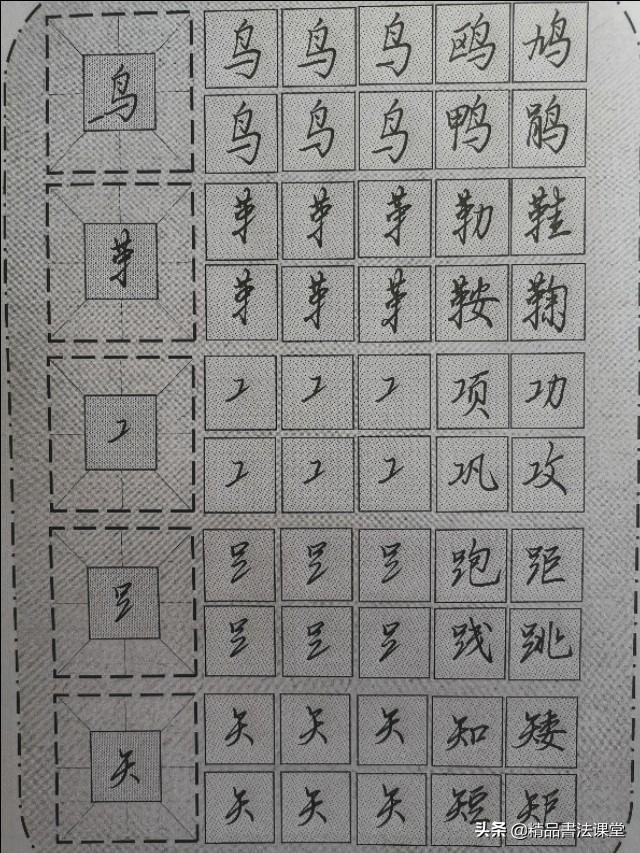 鸟 鸟 鸟 鸟 鸥 鸠
鸟 鸟 鸟 鸭 鹃
革 革 革 革 勒 鞋
革 革 革 鞍 鞠
工 工 工 工 项 功
工 工 工 巩 攻
⻊ ⻊ ⻊ ⻊ 跑 距
⻊ ⻊ ⻊ 践 跳
矢 矢 矢 矢 知 矮
矢 矢 矢 短 矩
头条 @精品書法课堂